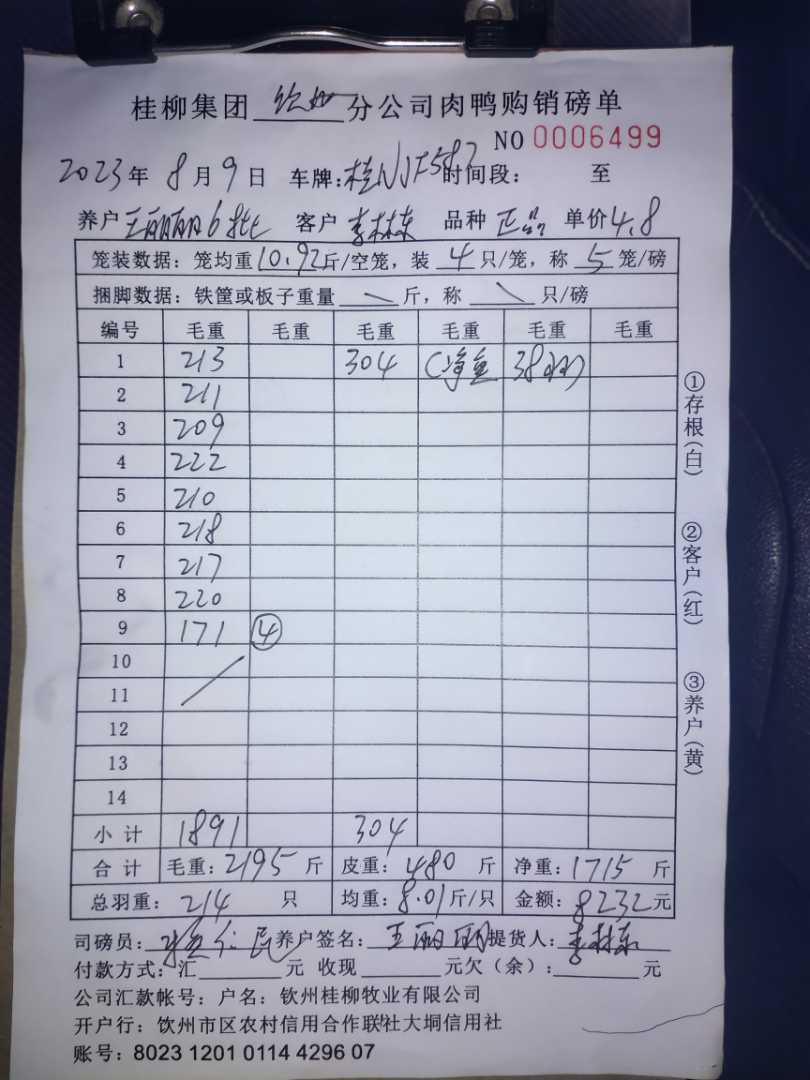 桂柳集团 钦州 分公司肉鸭购销磅单
NO 0006499
2023年 8月9日 车牌：桂NJF587 时间段： 至
养户 王丽丽6批 客户 李林东 品种 正品 单价4.8
笼装数据：笼均重10.92斤/空笼，装 4 只/笼，称 5 笼/磅
捆脚数据：铁筐或板子重量 斤，称 只/磅
编号 毛重 毛重 毛重 毛重 毛重 毛重
1 213 304 (净重 38羽)
2 211
3 209
4 222
5 210
6 218
7 217
8 220
9 171 ④
10
11
12
13
14
小计 1891 304
合计 毛重：2195斤 皮重：480斤 净重：1715斤
总羽重：214只 均重：8.01斤/只 金额：8232元
司磅员： 养户签名：王丽丽 提货人：李林东
付款方式：汇 元 收现 元欠（余）： 元
公司汇款帐号：户名：钦州桂柳牧业有限公司
开户行：饮州市区农村信用合作联社大垌信用社
账号：8023 1201 0114 4296 07
①存根（白）
②客户（红）
③养户（黄）